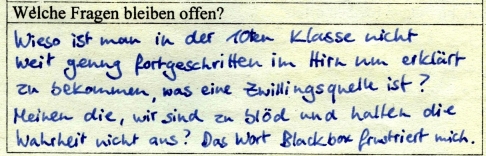 Welche Fragen bleiben offen?
Wieso ist man in der 10ten Klasse nicht
weit genug fortgeschritten im Hirn um erklärt
zu bekommen, was eine Zwillingsquelle ist?
Meinen die, wir sind zu blöd und halten die
Wahrheit nicht aus? Das Wort Blackbox frustriert mich.